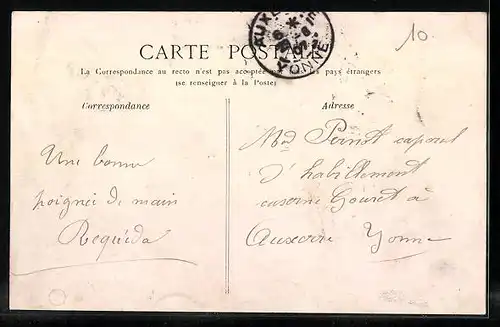 10
CARTE POSTALE
La Correspondance au recto n'est pas acceptée les pays étrangers
(se renseigner à la Poste)
Correspondance
Adresse
Une bonne
poignée de main
Requéda
Perrot caporal
d'habillement
caserne Gouret à
Auxerre Yonne